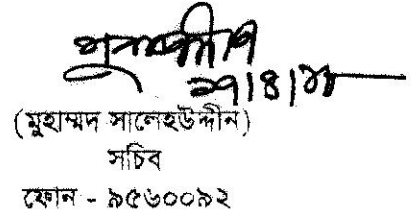 (মুহাম্মদ সালেহউদ্দীন)
সচিব
ফোন - ৯৫৬০০৯২